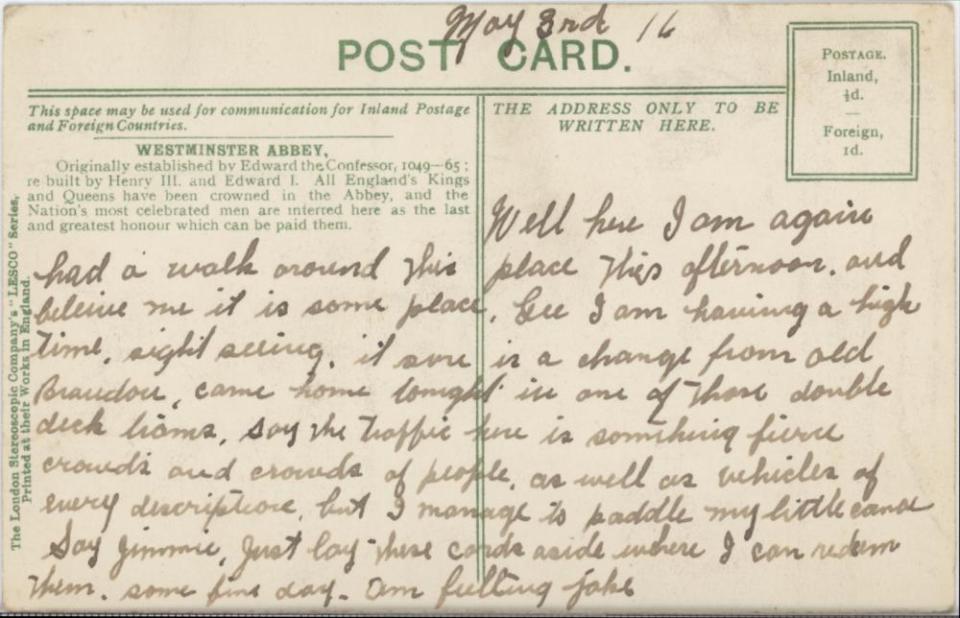 May 3rd 16
POST CARD.
POSTAGE.
Inland,
½d.
—
Foreign,
1d.
This space may be used for communication for Inland Postage
and Foreign Countries.
THE ADDRESS ONLY TO BE
WRITTEN HERE.
WESTMINSTER ABBEY,
Originally established by Edward the Confessor, 1049—65;
re built by Henry III. and Edward I. All England's Kings
and Queens have been crowned in the Abbey, and the
Nation's most celebrated men are interred here as the last
and greatest honour which can be paid them.
The London Stereoscopic Company's "LESCO" Series,
Printed at their Works in England.
Well here I am again
had a walk around this place this afternoon, and
beleive me it is some place, Gee I am having a high
time, sight seeing, it sure is a change from old
Brandon, came home tonight in one of those double
deck trams, say the traffic here is something fierce
crowds and crowds of people, as well as vehicles of
every description, but I manage to paddle my little canoe
Say Jimmie, Just lay these cards aside where I can redeem
them. some fine day. am feeling jake